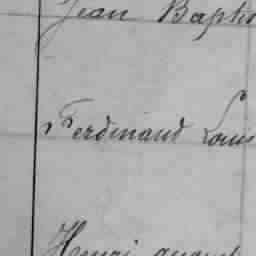 Jean Baptis
Ferdinand Louis
Henri